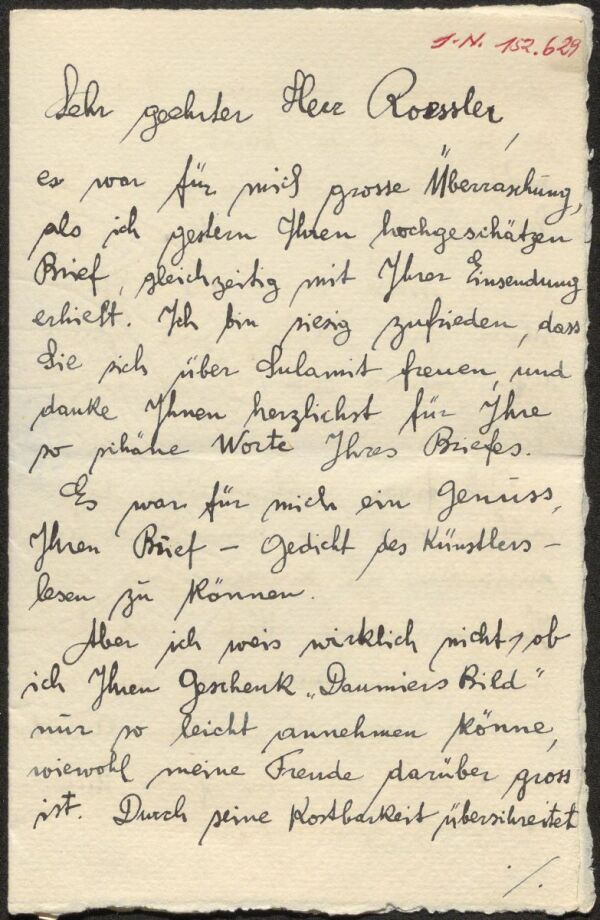 J.-N. 152.629
Sehr geehrter Herr Roessler,
es war für mich grosse Überraschung,
als ich gestern Ihren hochgeschätzen
Brief, gleichzeitig mit Ihrer Einsendung
erhielt. Ich bin riesig zufrieden, dass
Sie sich über Sulamit freuen, und
danke Ihnen herzlichst für Ihre
so schöne Worte Ihres Briefes.
Es war für mich ein Genuss,
Ihren Brief – Gedicht des Künstlers –
lesen zu können.
Aber ich weis wirklich nicht, ob
ich Ihren Geschenk „Daumiers Bild"
nur so leicht annehmen könne,
wiewohl meine Freude darüber gross
ist. Durch seine Kostbarkeit überschreitet
./.